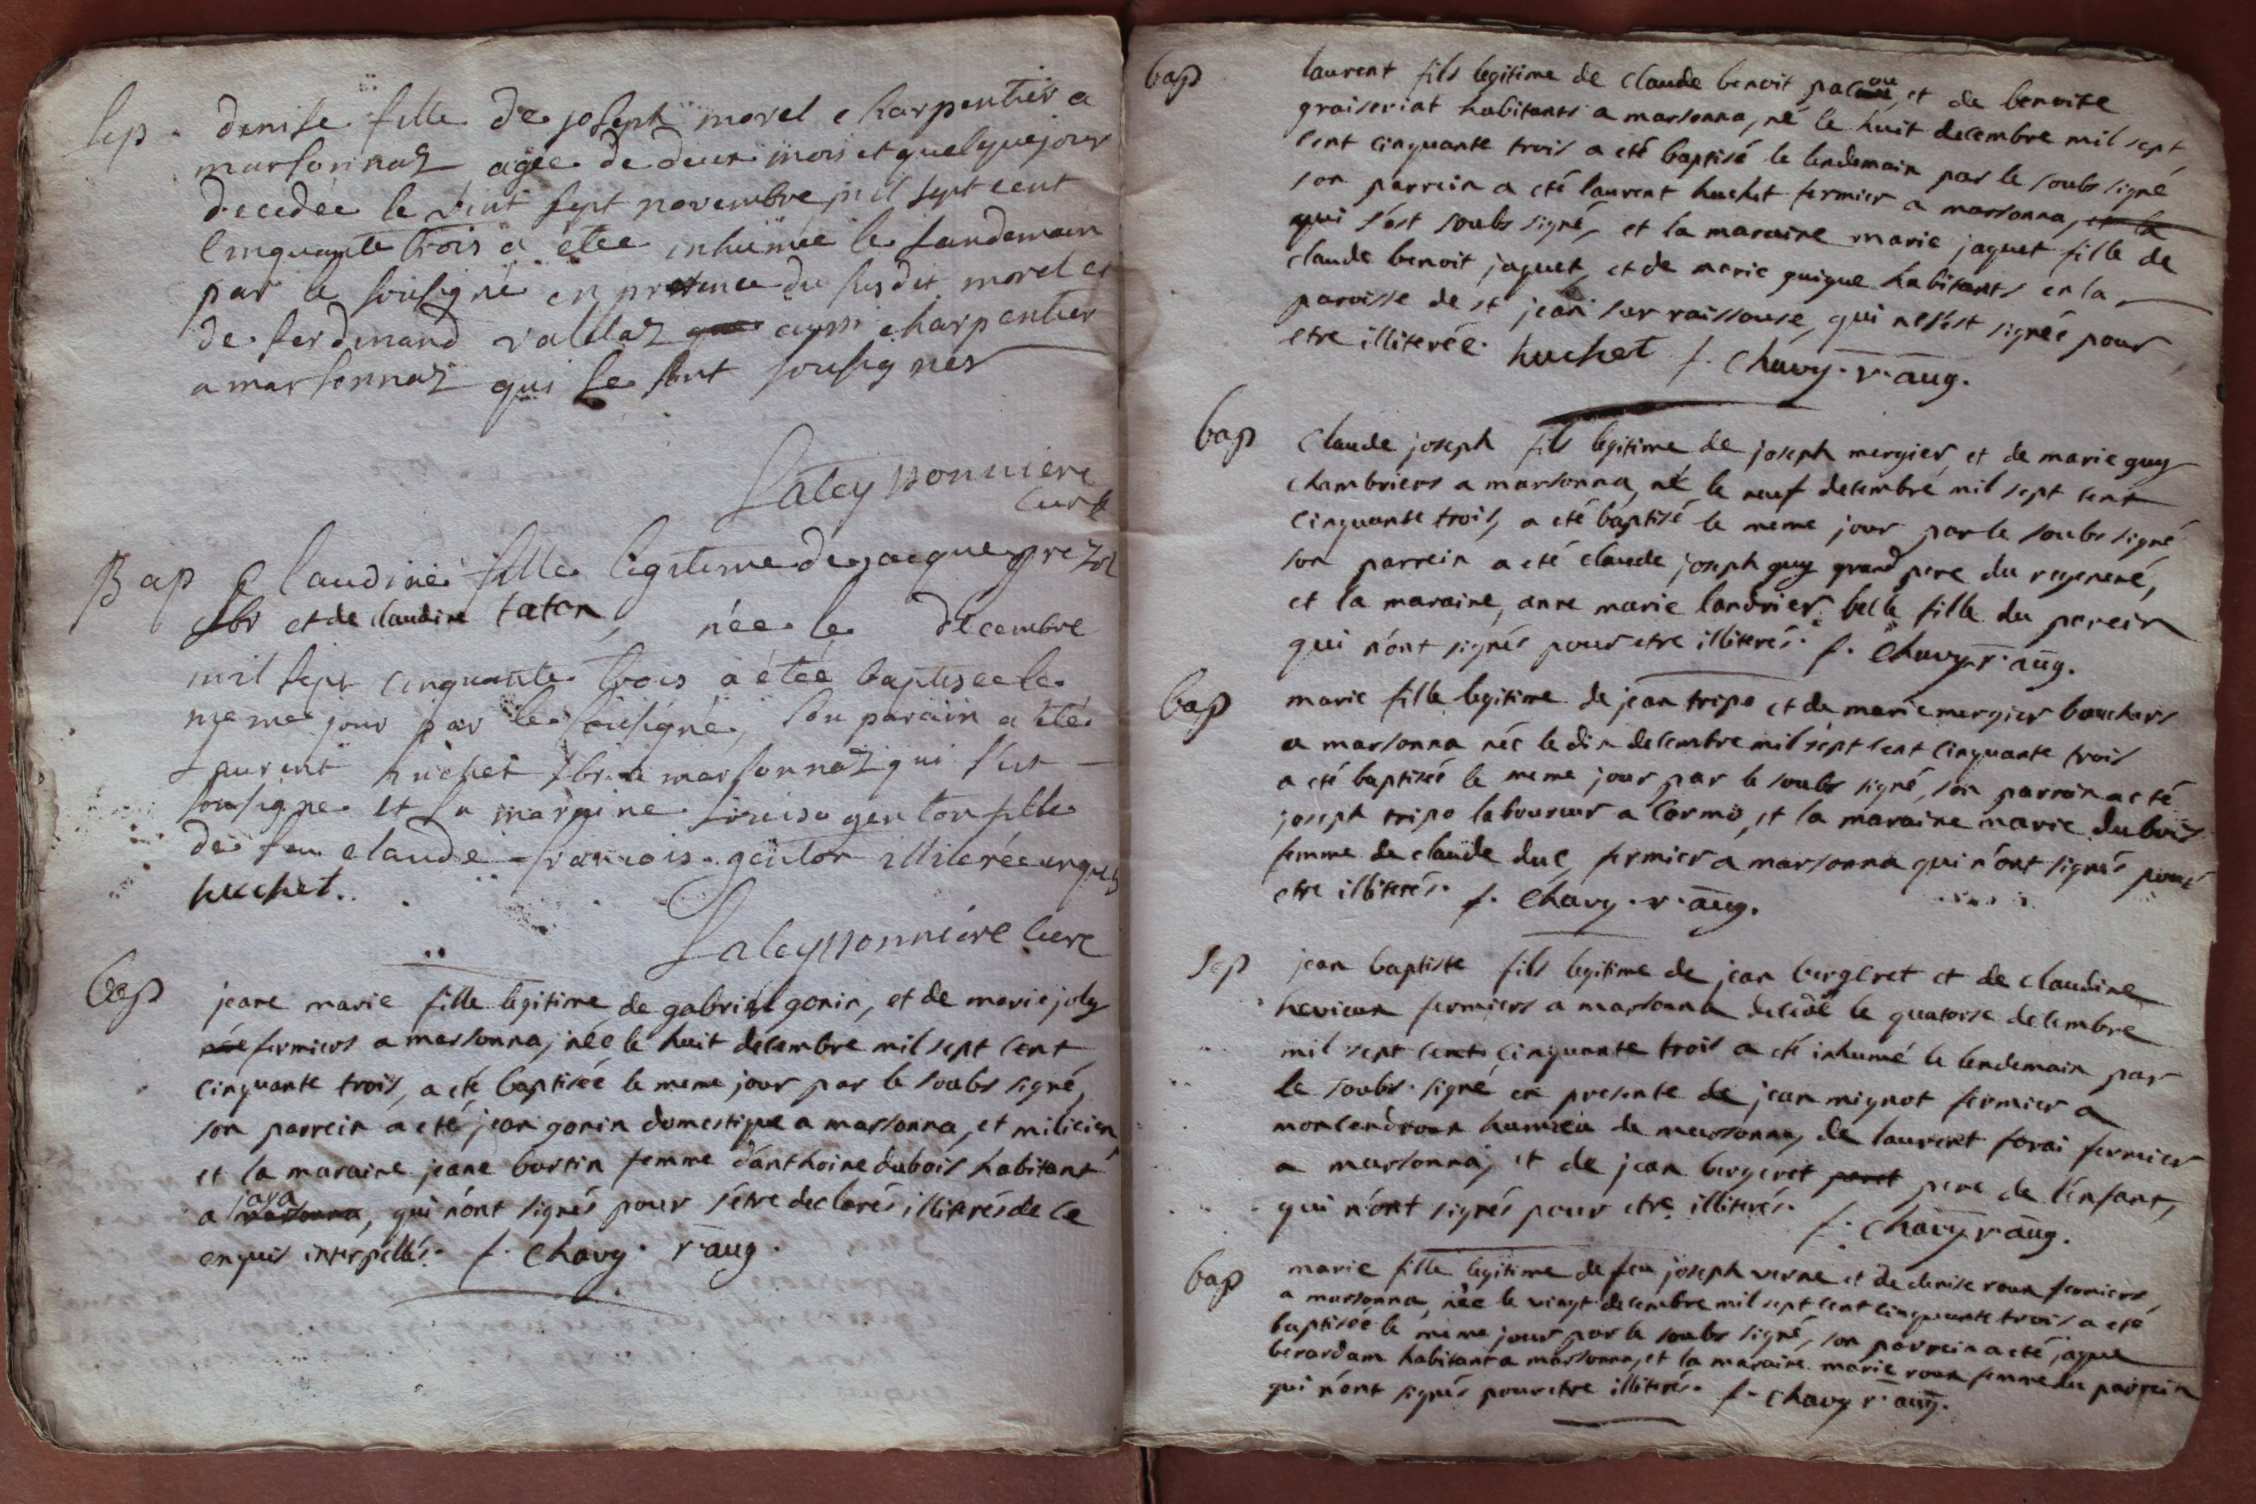 Sep. denise fille de joseph morel charpentier a
marsonnaz agée de deux mois et quelque jours
decedée le vint sept novembre mil sept cent
cinquante trois a étée inhumée le landemain
par le sousigné en presence du susdit morel et
de ferdinand valldaz aussi charpentier
a marsonnaz qui se sont sousignes
Lateyssonniere
curé
Bap Claudine fille legitime de jacque
et de claudine taton, née le decembre
mil sept cinquante trois a étée baptisee le
meme jour par le sousigné, son parain a été
Laurent huchet a marsonnaz qui s'est
sousigne et la maraine genton fille
de feu claude françois genton illiterée enquis
huchet.
Lateyssonniére cure
bap jeane marie fille legitime de gabriel gonin, et de marie joly
fermiers a marsonna, née le huit decembre mil sept cent
cinquante trois, a eté baptisée le meme jour par le soubs signé,
son parrein a eté jean gonin domestique a marsonna, et milicien,
et la maraine jeane bartin femme d'anthoine dubois habitant
a jaya, qui n'ont signés pour s'etre declarés illiterés de ce
enquis interpellés. f. Chavy. r. aug.
bap laurent fils legitime de claude benoit et de benoite
graiseriat habitants a marsonna, né le huit decembre mil sept
cent cinquante trois a eté baptisé le lendemain par le soubs signé
son parrein a eté laurent huchet fermier a marsonna, et la
qui s'est soubs signé, et la maraine marie jaquet fille de
claude benoit jaquet, et de marie guigue habitants en la
paroisse de st jean sur raissouse, qui ne s'est signée pour
etre illiterée. huchet f. Chavy. r. aug.
bap Claude joseph fils legitime de joseph mergier, et de marie guy
chambriers a marsonna, né le neuf decembre mil sept cent
cinquante trois, a eté baptisé le meme jour par le soubs signé,
son parrein a eté claude joseph guy grand pere du regeneré,
et la maraine, anne marie landrier belle fille du parrein
qui n'ont signés pour etre illiterés. f. Chavy r. aug.
bap marie fille legitime de jean tripo et de marie mergier bouchers
a marsonna née le dix decembre mil sept cent cinquante trois
a eté baptisée le meme jour par le soubs signé, son parrein a eté
joseph tripo laboureur a Cormo, et la maraine marie dubois
femme de claude duc, fermier a marsonna qui n'ont signés pour
etre illiterés. f. Chavy. r. aug.
Sep jean baptiste fils legitime de jean bergeret et de claudine
fermiers a marsonna decedé le quatorse decembre
mil sept cent cinquante trois a eté inhumé le lendemain par
le soubs signé en presente de jean mignot fermier a
hameau de marsonna, de laurent forai fermier
a marsonna, et de jean bergeret peret pere de l'enfant,
qui n'ont signés pour etre illiterés. f. Chavy r. aug.
bap marie fille legitime de feu joseph verne et de denise roux fermiers,
a marsonna, née le vingt decembre mil sept cent cinquante trois a eté
baptisée le meme jour par le soubs signé, son parrein a eté jaque
berardam habitant a marsonna, et la maraine marie roux femme du parrein
qui n'ont signés pour etre illiterés. f. Chavy r. aug.